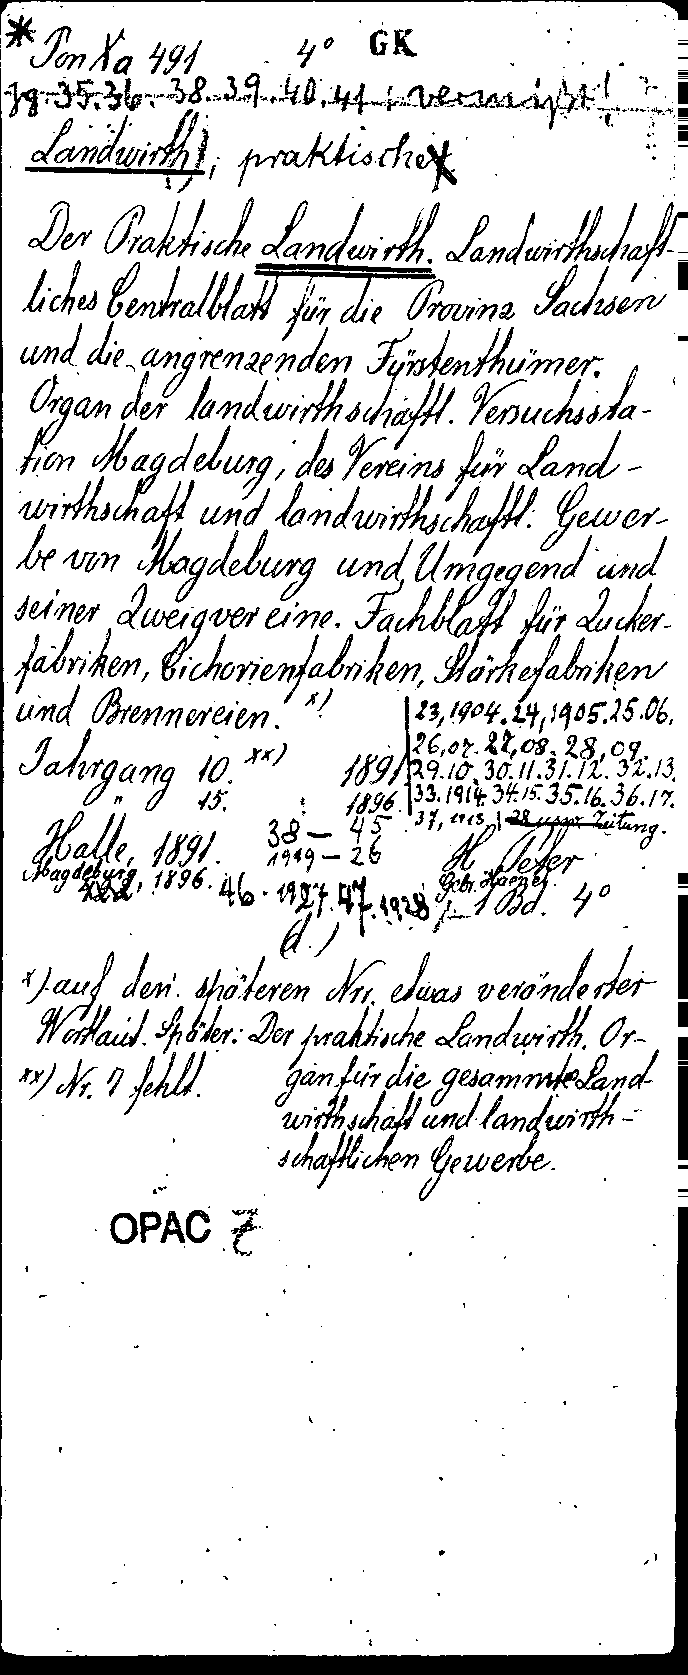 * Pon Xa 491 4° GK
Jg. 35. 36. 38. 39. 40. 41 : vermißt!
Landwirth, praktische
Der Praktische Landwirth. Landwirthschaft-
liches Centralblatt für die Provinz Sachsen
und die angrenzenden Fürstenthümer.
Organ der landwirthschaftl. Versuchssta-
tion Magdeburg, des Vereins für Land-
wirthschaft und landwirthschaftl. Gewer-
be von Magdeburg und Umgegend und
seiner Zweigvereine. Fachblatt für Zucker-
fabriken, Cichorienfabriken, Stärkefabriken
und Brennereien. x)
23, 1904. 24, 1905. 25. 06.
26, 07. 27, 08. 28, 09.
Jahrgang 10. xx) 1891
29. 10. 30. 11. 31. 12. 32. 13.
" 15. : 1896
33. 1914. 34. 15. 35. 16. 36. 17.
37, 1918, Zeitung.
38 – 45
Halle, 1891. 1919 – 26 H. Peter
Magdeburg, 1896. Gebr.
46. 1927. 47. 1928 1 Bd. 4°
x) auf den späteren Nrr. etwas veränderter
Wortlaut. Später: Der praktische Landwirth. Or-
xx) Nr. 7 fehlt. gan für die gesammte Land-
wirthschaft und landwirth-
schaftlichen Gewerbe.
OPAC